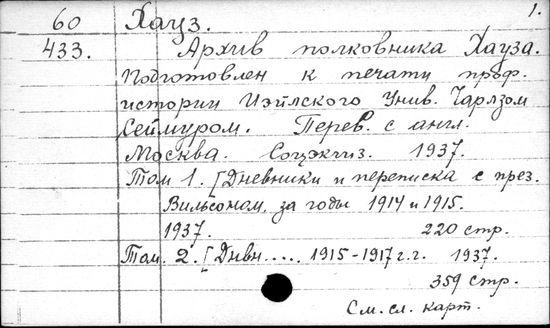 1.
60 Хауз.
433. Архив полковника Хауза.
Подготовлен к печати проф.
истории Иэйлского Унив. Чарлзом
Сеймуром. Перев. с англ.
Москва. Соцэкгиз. 1937.
Том 1. [Дневники и переписка с през.
Вильсоном, за годы 1914 и 1915.
1937. 220 стр.
Том. 2. [Дневн..... 1915-1917 г.г. 1937.
359 стр.
См. сл. карт.